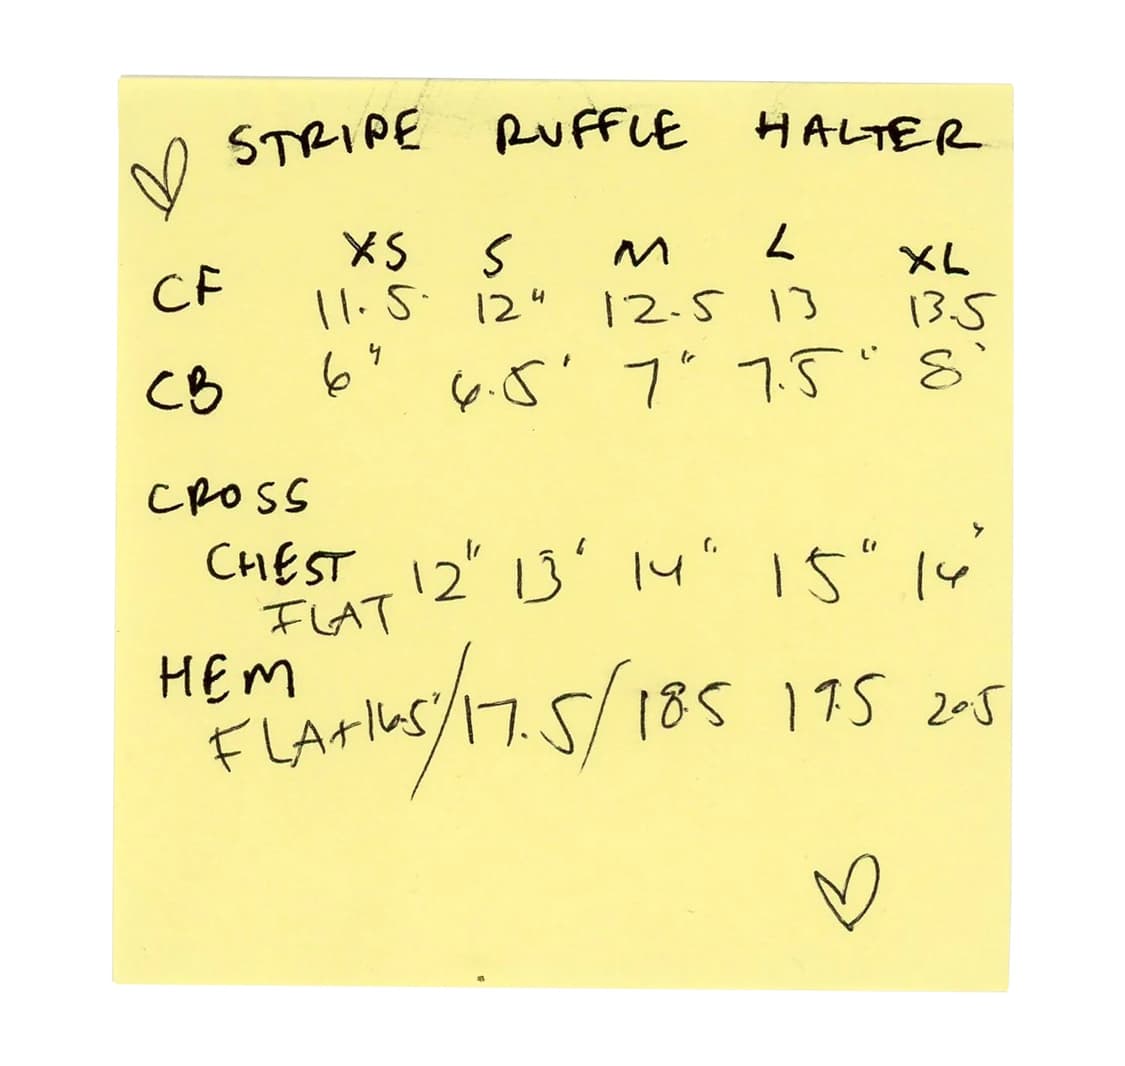 STRIPE RUFFLE HALTER
XS S M L XL
CF 11.5 12" 12.5 13 13.5
CB 6" 6.5' 7" 7.5" 8'
CROSS
CHEST 12" 13' 14" 15" 16'
FLAT
HEM
FLAt 16.5"/17.5/ 18.5 19.5 20.5